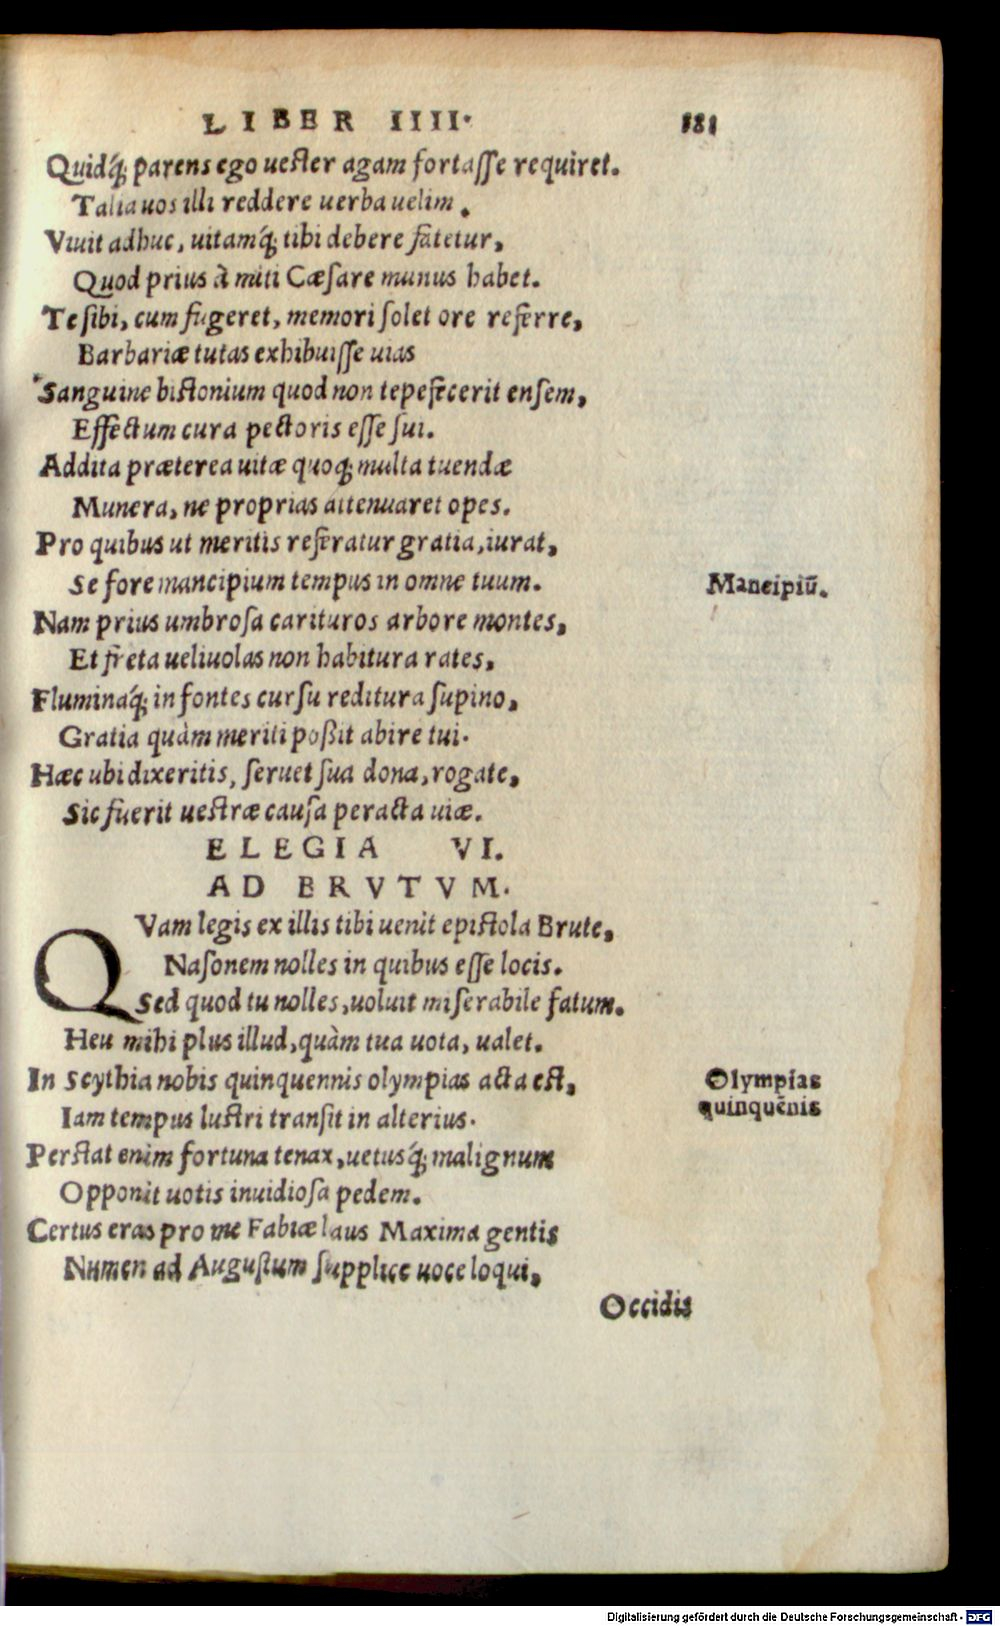 LIBER IIII. 181
Quidq́; parens ego uester agam fortasse requiret.
Talia uos illi reddere uerba uelim.
Viuit adhuc, uitamq́; tibi debere fatetur,
Quod prius à miti Cæsare munus habet.
Te sibi, cum fugeret, memori solet ore referre,
Barbariæ tutas exhibuisse uias
Sanguine bistonium quod non tepefecerit ensem,
Effectum cura pectoris esse sui.
Addita præterea uitæ quoq; multa tuendæ
Munera, ne proprias attenuaret opes.
Pro quibus ut meritis referatur gratia, iurat,
Se fore mancipium tempus in omne tuum.
Mancipiū.
Nam prius umbrosa carituros arbore montes,
Et freta ueliuolas non habitura rates,
Fluminaq́; in fontes cursu reditura supino,
Gratia quàm meriti poßit abire tui.
Hæc ubi dixeritis, seruet sua dona, rogate,
Sic fuerit uestræ causa peracta uiæ.
ELEGIA VI.
AD BRVTVM.
QVam legis ex illis tibi uenit epistola Brute,
Nasonem nolles in quibus esse locis.
Sed quod tu nolles, uoluit miserabile fatum.
Heu mihi plus illud, quàm tua uota, ualet.
In Scythia nobis quinquennis olympias acta est,
Olympias
quinquēnis
Iam tempus lustri transit in alterius.
Perstat enim fortuna tenax, uetusq́; malignum
Opponit uotis inuidiosa pedem.
Certus eras pro me Fabiæ laus Maxima gentis
Numen ad Augustum supplice uoce loqui,
Occidis
Digitalisierung gefördert durch die Deutsche Forschungsgemeinschaft - DFG